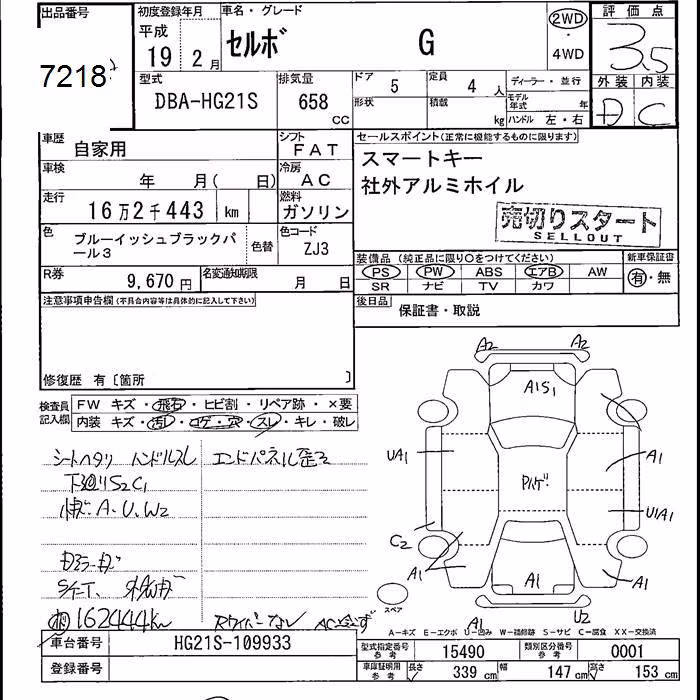 出品番号
7218
初度登録年月
平成
19年 2月
車名・グレード
セルボ G
2WD
・
4WD
評価点
3.5
外装 内装
D C
型式
DBA-HG21S
排気量
658 CC
ドア 5
定員 4 人
形状
積載 kg
ディーラー・並行
モデル年式 年
ハンドル 左・右
車歴
自家用
シフト
FAT
車検
年 月( 日)
冷房
AC
走行
16万2千443 km
燃料
ガソリン
色
ブルーイッシュブラックパール3
色替
色コード
ZJ3
R券
9,670 円
名変通知期限 月 日
セールスポイント(正常に機能するものに限ります)
スマートキー
社外アルミホイル
売切りスタート
SELLOUT
装備品(純正品に限り○をつけてください)
PS PW ABS エアB AW
SR ナビ TV カワ
新車保証書
有・無
後日品
保証書・取説
注意事項申告欄(不具合内容等は具体的に記入して下さい)
修復歴 有〔箇所 〕
検査員記入欄
FW キズ・飛石・ヒビ割・リペア跡・×要
内装 キズ・汚レ・コゲ・穴・スレ・キレ・破レ
シートヘタリ ハンドルスレ
エンドパネル歪ミ
下廻りS2C1
A.U.W2
162444km
Rワイパーなし
A2 A2
A1S1
UA1
A1
U1A1
C2
A1
A1
A1
A1
U2
スペア
A-キズ E-エクボ U-凹み W-補修跡 S-サビ C-腐食 XX-交換済
車台番号
HG21S-109933
登録番号
型式指定番号 参考
15490
類別区分番号 参考
0001
車庫証明用 参考
長さ 339 cm
幅 147 cm
高さ 153 cm